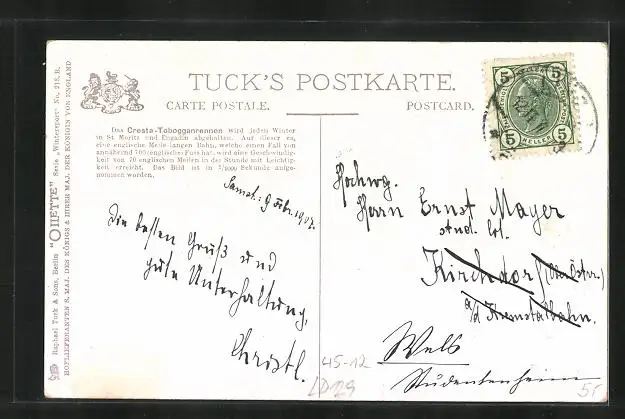 TUCK'S POSTKARTE.
CARTE POSTALE.
POSTCARD.
Das Cresta-Tobogganrennen wird jeden Winter
in St Moritz und Engadin abgehalten. Auf dieser ca.
eine englische Meile langen Bahn, welche einen Fall von
annähernd 700 (englische) Fuss hat, wird eine Geschwindig-
keit von 70 englischen Meilen in der Stunde mit Leichtig-
keit erreicht. Das Bild ist in 1/1000 Sekunde aufge-
nommen worden.
Raphael Tuck & Sons, Berlin "OILETTE" Serie „Wintersport" No. 218. B.
HOFLIEFERANTEN S. MAJ. DES KÖNIGS & IHRER MAJ. DER KÖNIGIN VON ENGLAND.
Samst. 9 Febr. 1907.
Die besten Grüße und
gute Unterhaltung,
Christl.
5 5
5 HELLER 5
Hochwg.
Herrn Ernst Mayer
stud.
Kirchdorf (Oberöster.)
a/d Kremstalbahn.
Wels
Studentenheim
45-12
LD29
5.-